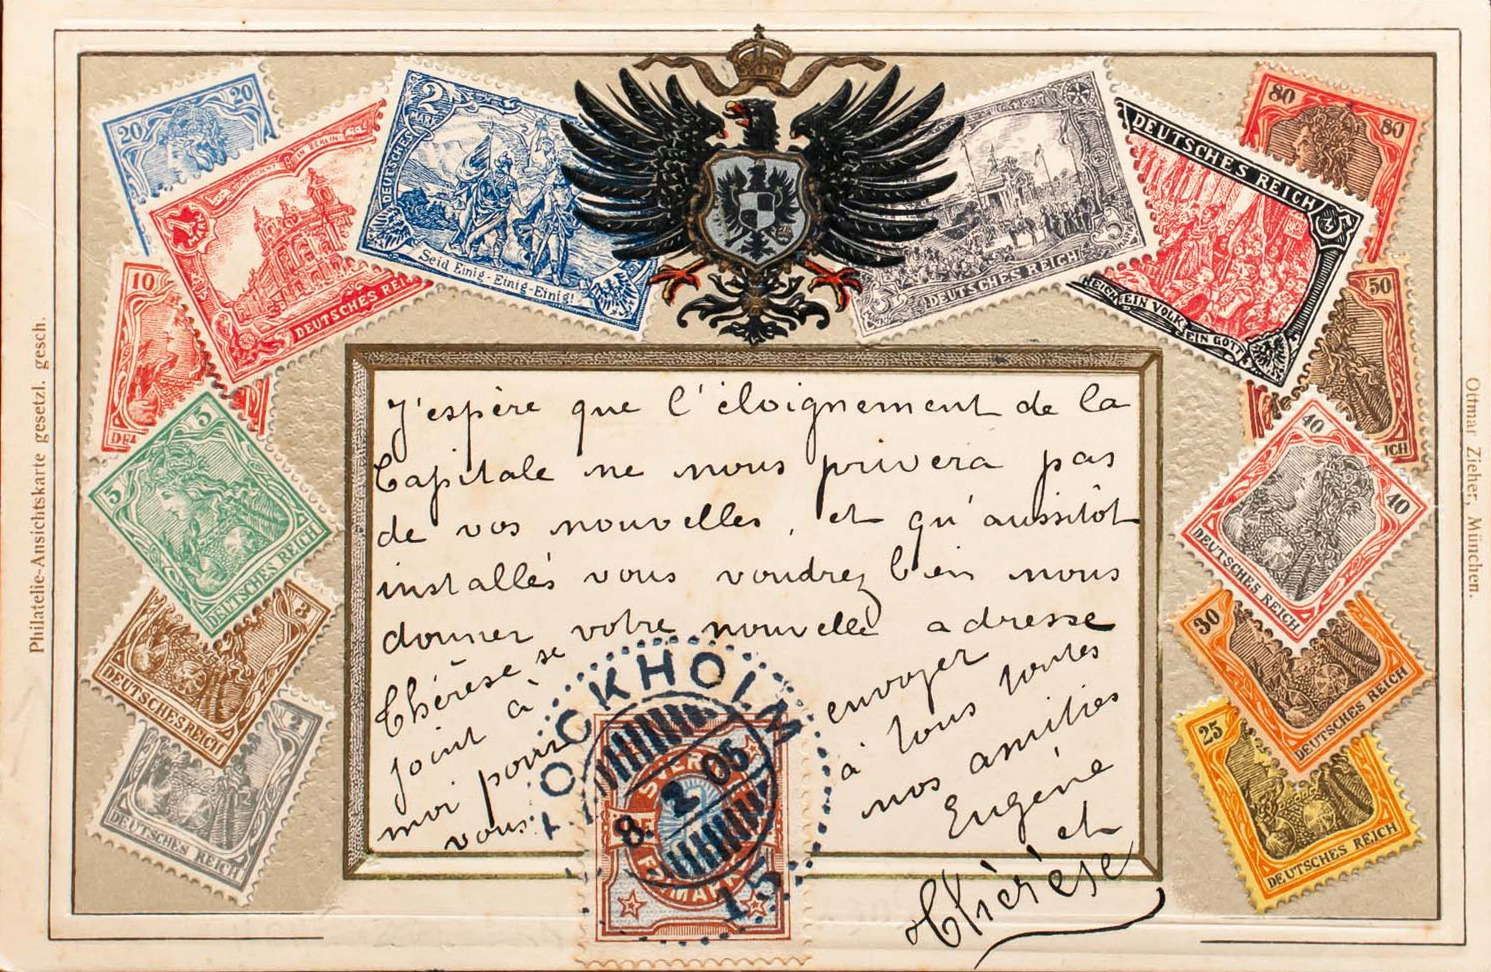 Philatelie-Ansichtskarte gesetzl. gesch.
Ottmar Zieher, München.
20
20
10
5
5
DEUTSCHES REICH
3
DEUTSCHES REICH
2
DEUTSCHES REICH
DEUTSCHES REI
2
MARK
DEUTSCHES
Seid Einig-Einig-Einig!
DEUTSCHES REICH
DEUTSCHES REICH
EIN VOLK EIN GOTT
80
80
50
ICH
40
40
DEUTSCHES REICH
30
DEUTSCHES REICH
25
DEUTSCHES REICH
J'espère que l'éloignement de la
Capitale ne nous privera pas
de vos nouvelles, et qu'aussitôt
installés vous voudrez bien nous
donner votre nouvelle adresse
Thérèse se
joint à
moi pour
vous
envoyer
à tous toutes
nos amitiés
Eugénie
et
Thérèse
STOCKHOLM
8. 2 05